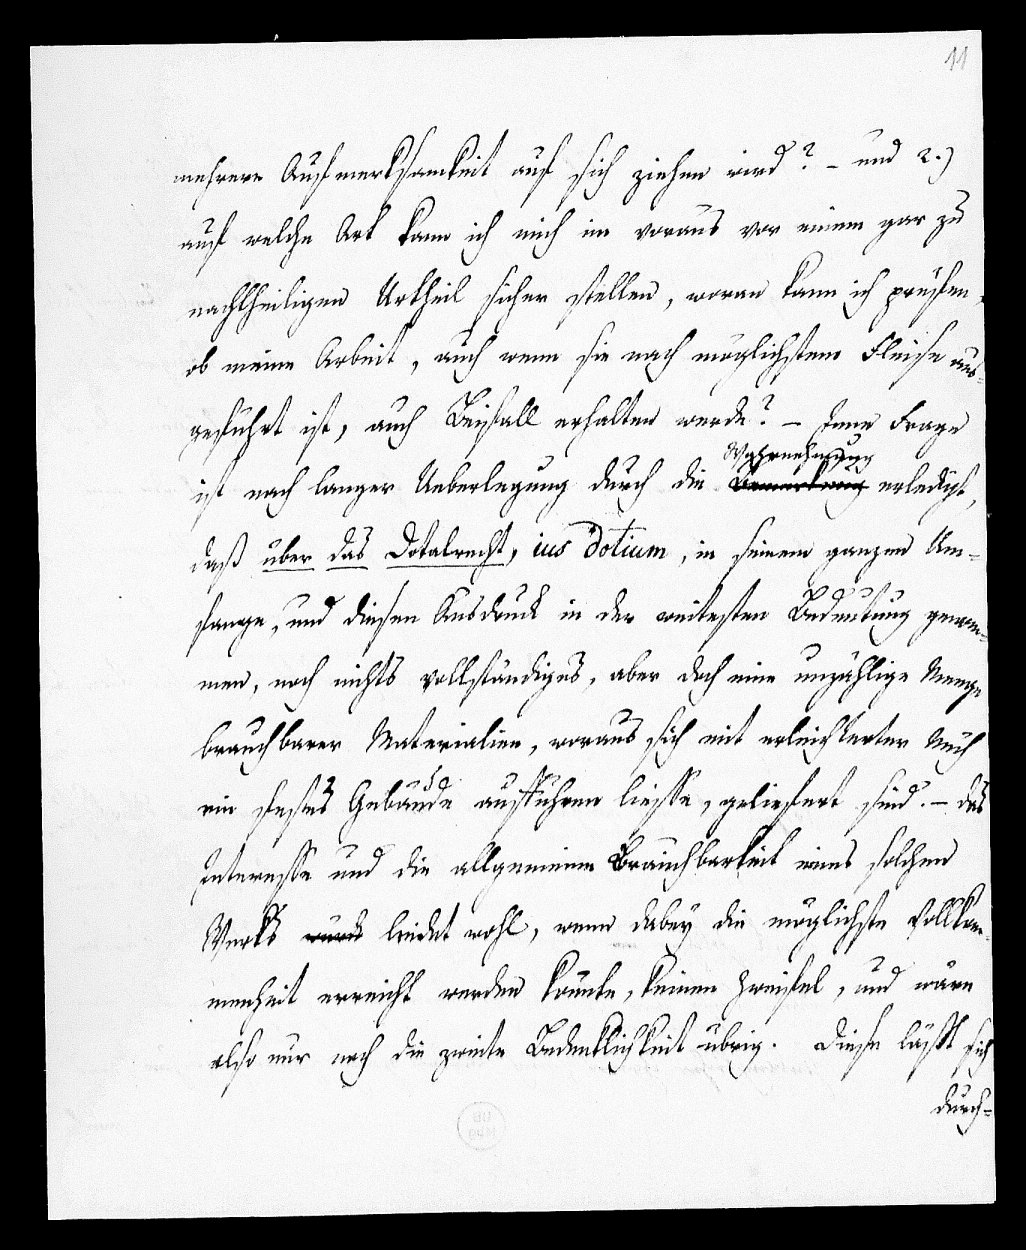 11
mehrere Aufmerksamkeit auf sich ziehen wird? – und 2.)
auf welche Art kann ich mich im voraus vor einem gar zu
nachtheiligen Urtheil sicher stellen, woran kann ich prüfen,
ob meine Arbeit, auch wenn sie nach möglichstem Fleise aus-
geführt ist, auch Beifall erhalten werde? – Jene Frage
Wahrnehmung
ist nach langer Ueberlegung durch die Bemerkung erledigt,
daß über das Dotalrecht, ius dotium, in seinem ganzen Um-
fange, und diesen Ausdruck in der weitesten Bedeutung genom-
men, noch nichts vollständiges, aber doch eine unzählige Menge
brauchbarer Materialien, woraus sich mit erleichterter Müh
ein festes Gebäude aufführen liesse, geliefert sind. – Das
Interesse und die allgemeine Brauchbarkeit eines solchen
Werks leidet wohl, wenn dabey die möglichste Vollkom-
menheit erreicht werden könnte, keinen Zweifel, und wäre
also nur noch die zweite Bedenklichkeit übrig. Diese läßt sich
durch-